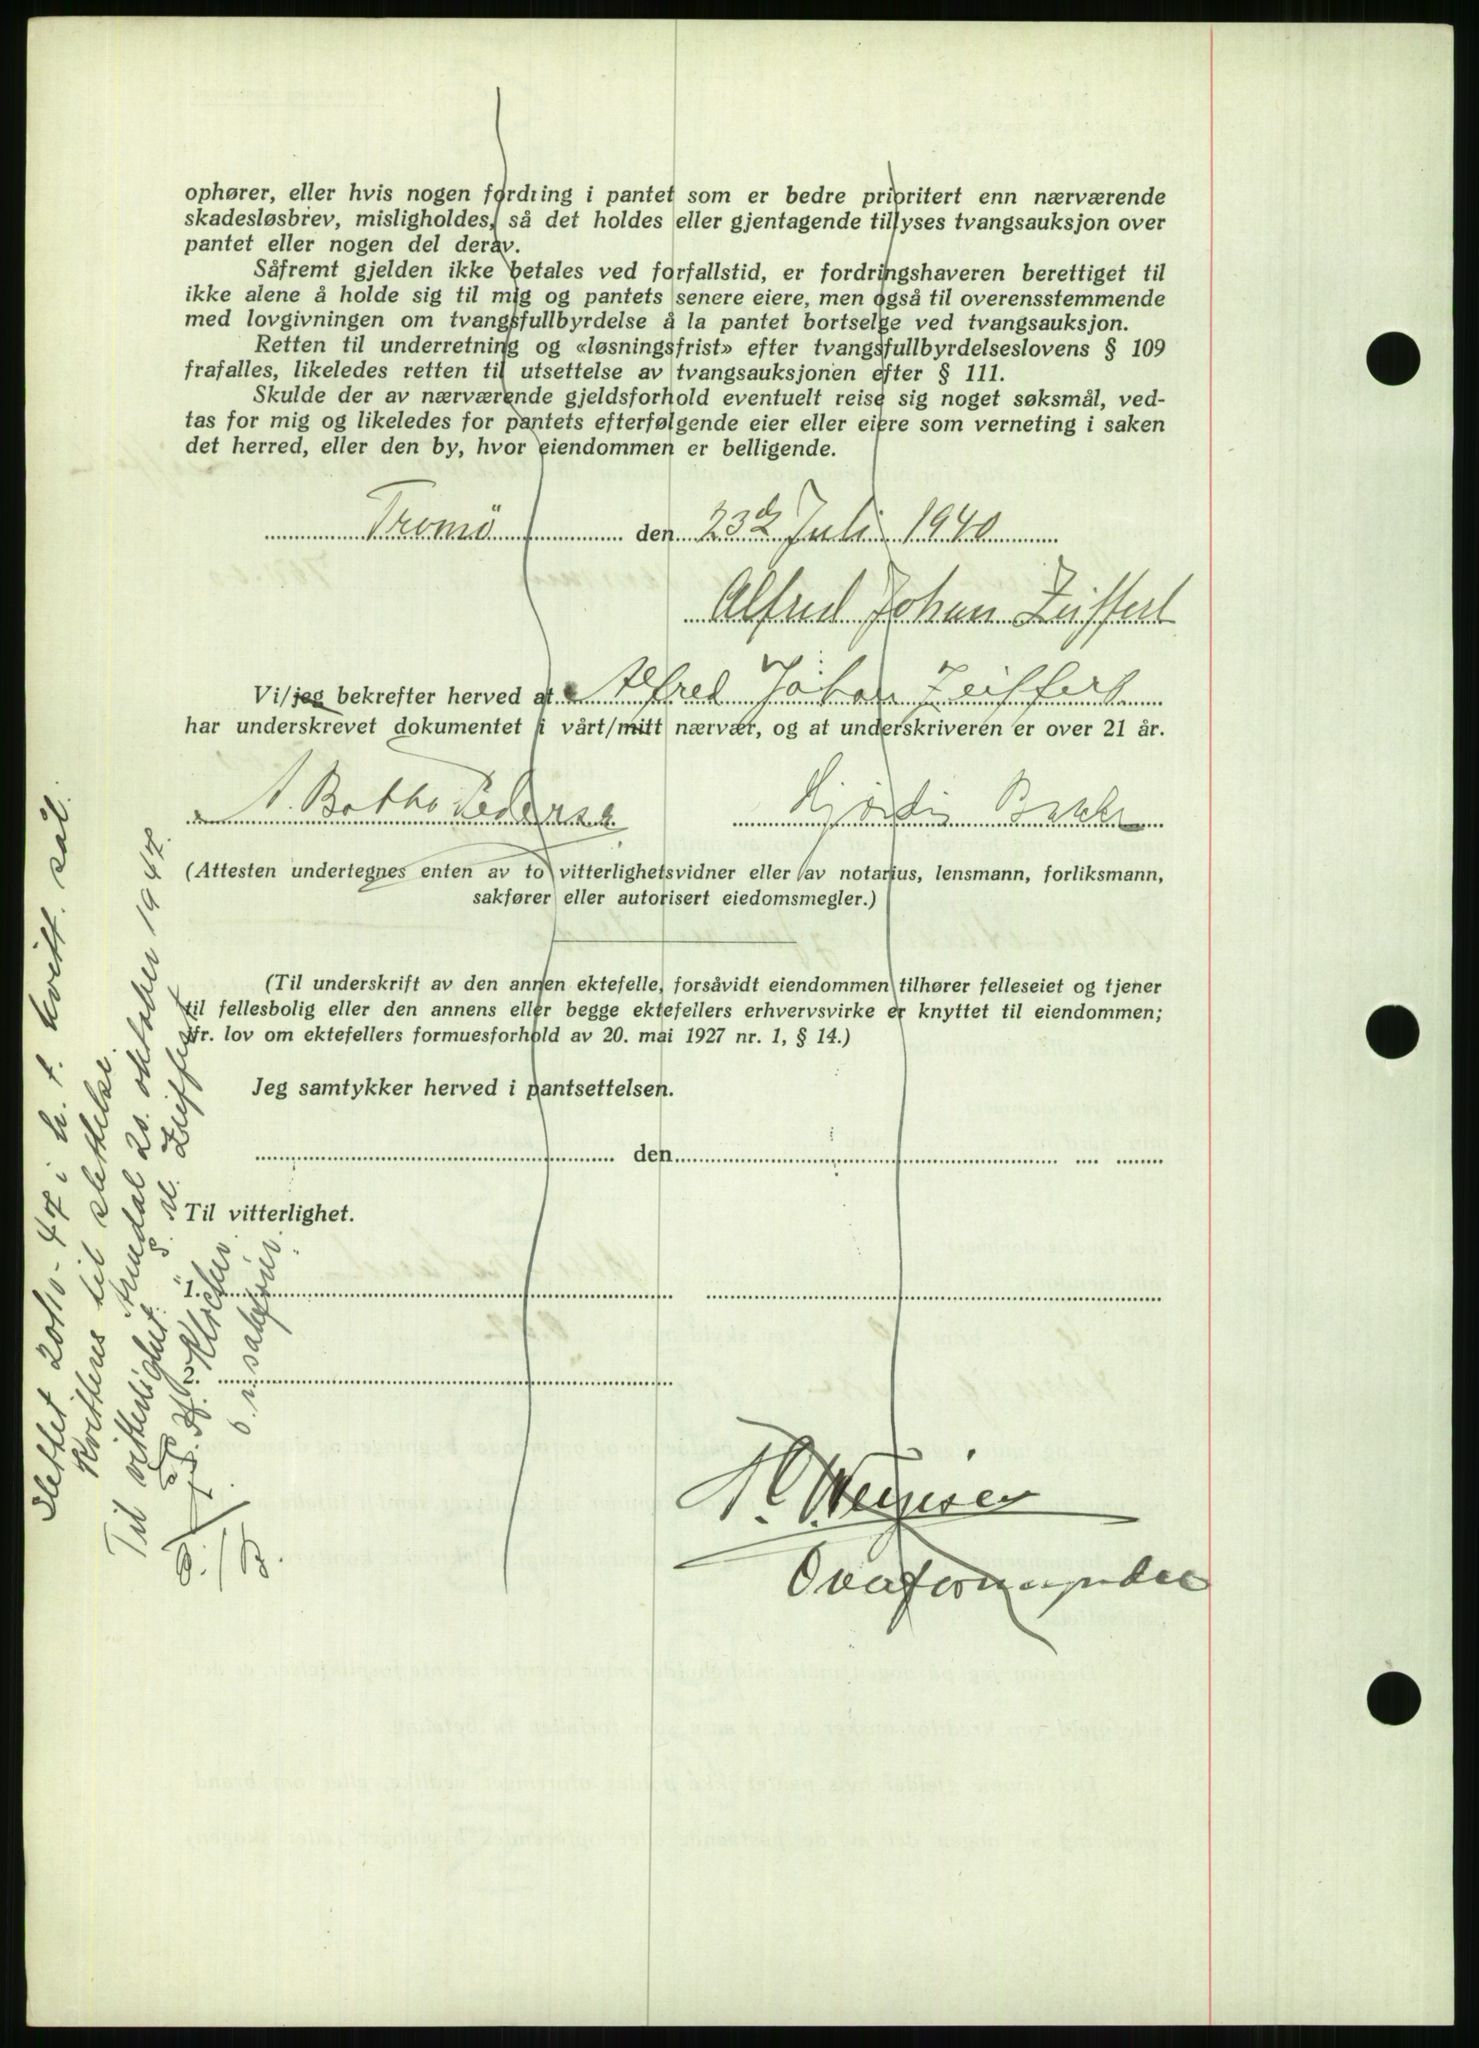 ophører, eller hvis nogen fordring i pantet som er bedre prioritert enn nærværende
skadesløsbrev, misligholdes, så det holdes eller gjentagende tillyses tvangsauksjon over
pantet eller nogen del derav.
Såfremt gjelden ikke betales ved forfallstid, er fordringshaveren berettiget til
ikke alene å holde sig til mig og pantets senere eiere, men også til overensstemmende
med lovgivningen om tvangsfullbyrdelse å la pantet bortselge ved tvangsauksjon.
Retten til underretning og «løsningsfrist» efter tvangsfullbyrdelseslovens § 109
frafalles, likeledes retten til utsettelse av tvangsauksjonen efter § 111.
Skulde der av nærværende gjeldsforhold eventuelt reise sig noget søksmål, ved-
tas for mig og likeledes for pantets efterfølgende eier eller eiere som verneting i saken
det herred, eller den by, hvor eiendommen er belligende.
Tromö den 23de Juli 1940
Alfred Johan Zeiffert
Vi/jeg bekrefter herved at Alfred Johan Zeiffert
har underskrevet dokumentet i vårt/mitt nærvær, og at underskriveren er over 21 år.
A. Botho Pedersen Hjördis Bakke
(Attesten undertegnes enten av to vitterlighetsvidner eller av notarius, lensmann, forliksmann,
sakfører eller autorisert eiedomsmegler.)
(Til underskrift av den annen ektefelle, forsåvidt eiendommen tilhører felleseiet og tjener
til fellesbolig eller den annens eller begge ektefellers erhvervsvirke er knyttet til eiendommen;
jfr. lov om ektefellers formuesforhold av 20. mai 1927 nr. 1, § 14.)
Jeg samtykker herved i pantsettelsen.
den
Til vitterlighet.
1.
2.
Overformynder
Slettet 20/10-47 i h. t. kvitt. sål.
Kvitteres til slettelse.
Arendal 20. oktober 1947.
Zeiffert
Til vitterlighet:
o.r.sakfører.